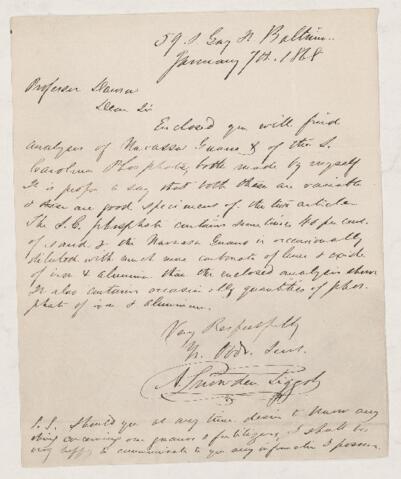 59 S Gay St Baltim.
January 7th. 1868
Professor
Dear Sir
Enclosed you will find
analyses of Navassa Guano & of the S.
Carolina Phosphate, both made by myself
It is proper to say that both these are variable
& these are good specimens of the two articles
The S.C. phosphate contains sometimes 40 per cent.
of sand & the Navassa Guano is occasionally
diluted with much more carbonate of lime & oxide
of iron & alumina than the enclosed analysis shows
It also contains occasionally quantities of phos-
phate of iron & aluminum.
Very Respectfully
Yr. Obdt. Servt.
A Snowden Piggot
P.S. Should you at any time desire to know any
thing concerning our guanos & fertilizers, I shall be
very happy to communicate to you any information I possess.